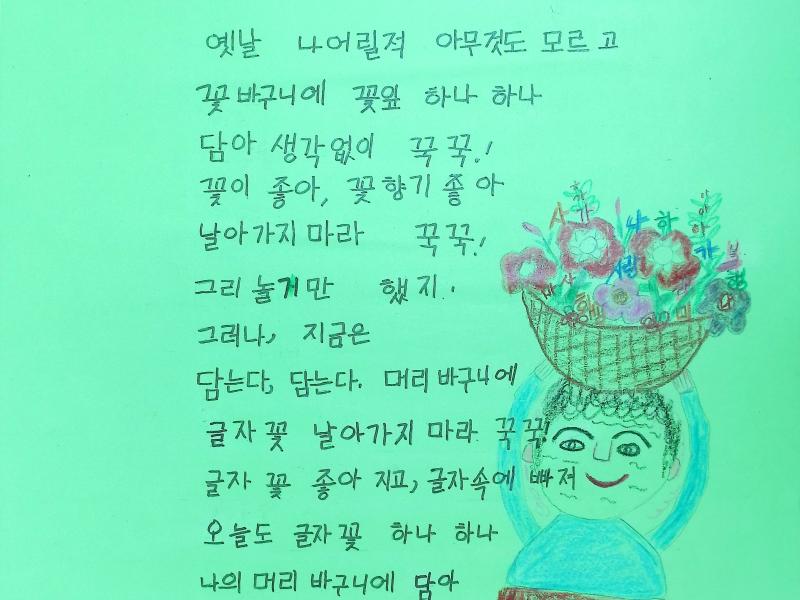 옛날 나어릴적 아무것도 모르고
꽃바구니에 꽃잎 하나 하나
담아 생각없이 꾹꾹.!
꽃이 좋아, 꽃향기 좋아
날아가지 마라 꾹꾹.!
그리 눌기만 했지.
그러나, 지금은
담는다, 담는다. 머리 바구니에
글자 꽃 날아가지 마라 꾹꾹!
글자 꽃 좋아 지고, 글자속에 빠져
오늘도 글자꽃 하나 하나
나의 머리 바구니에 담아